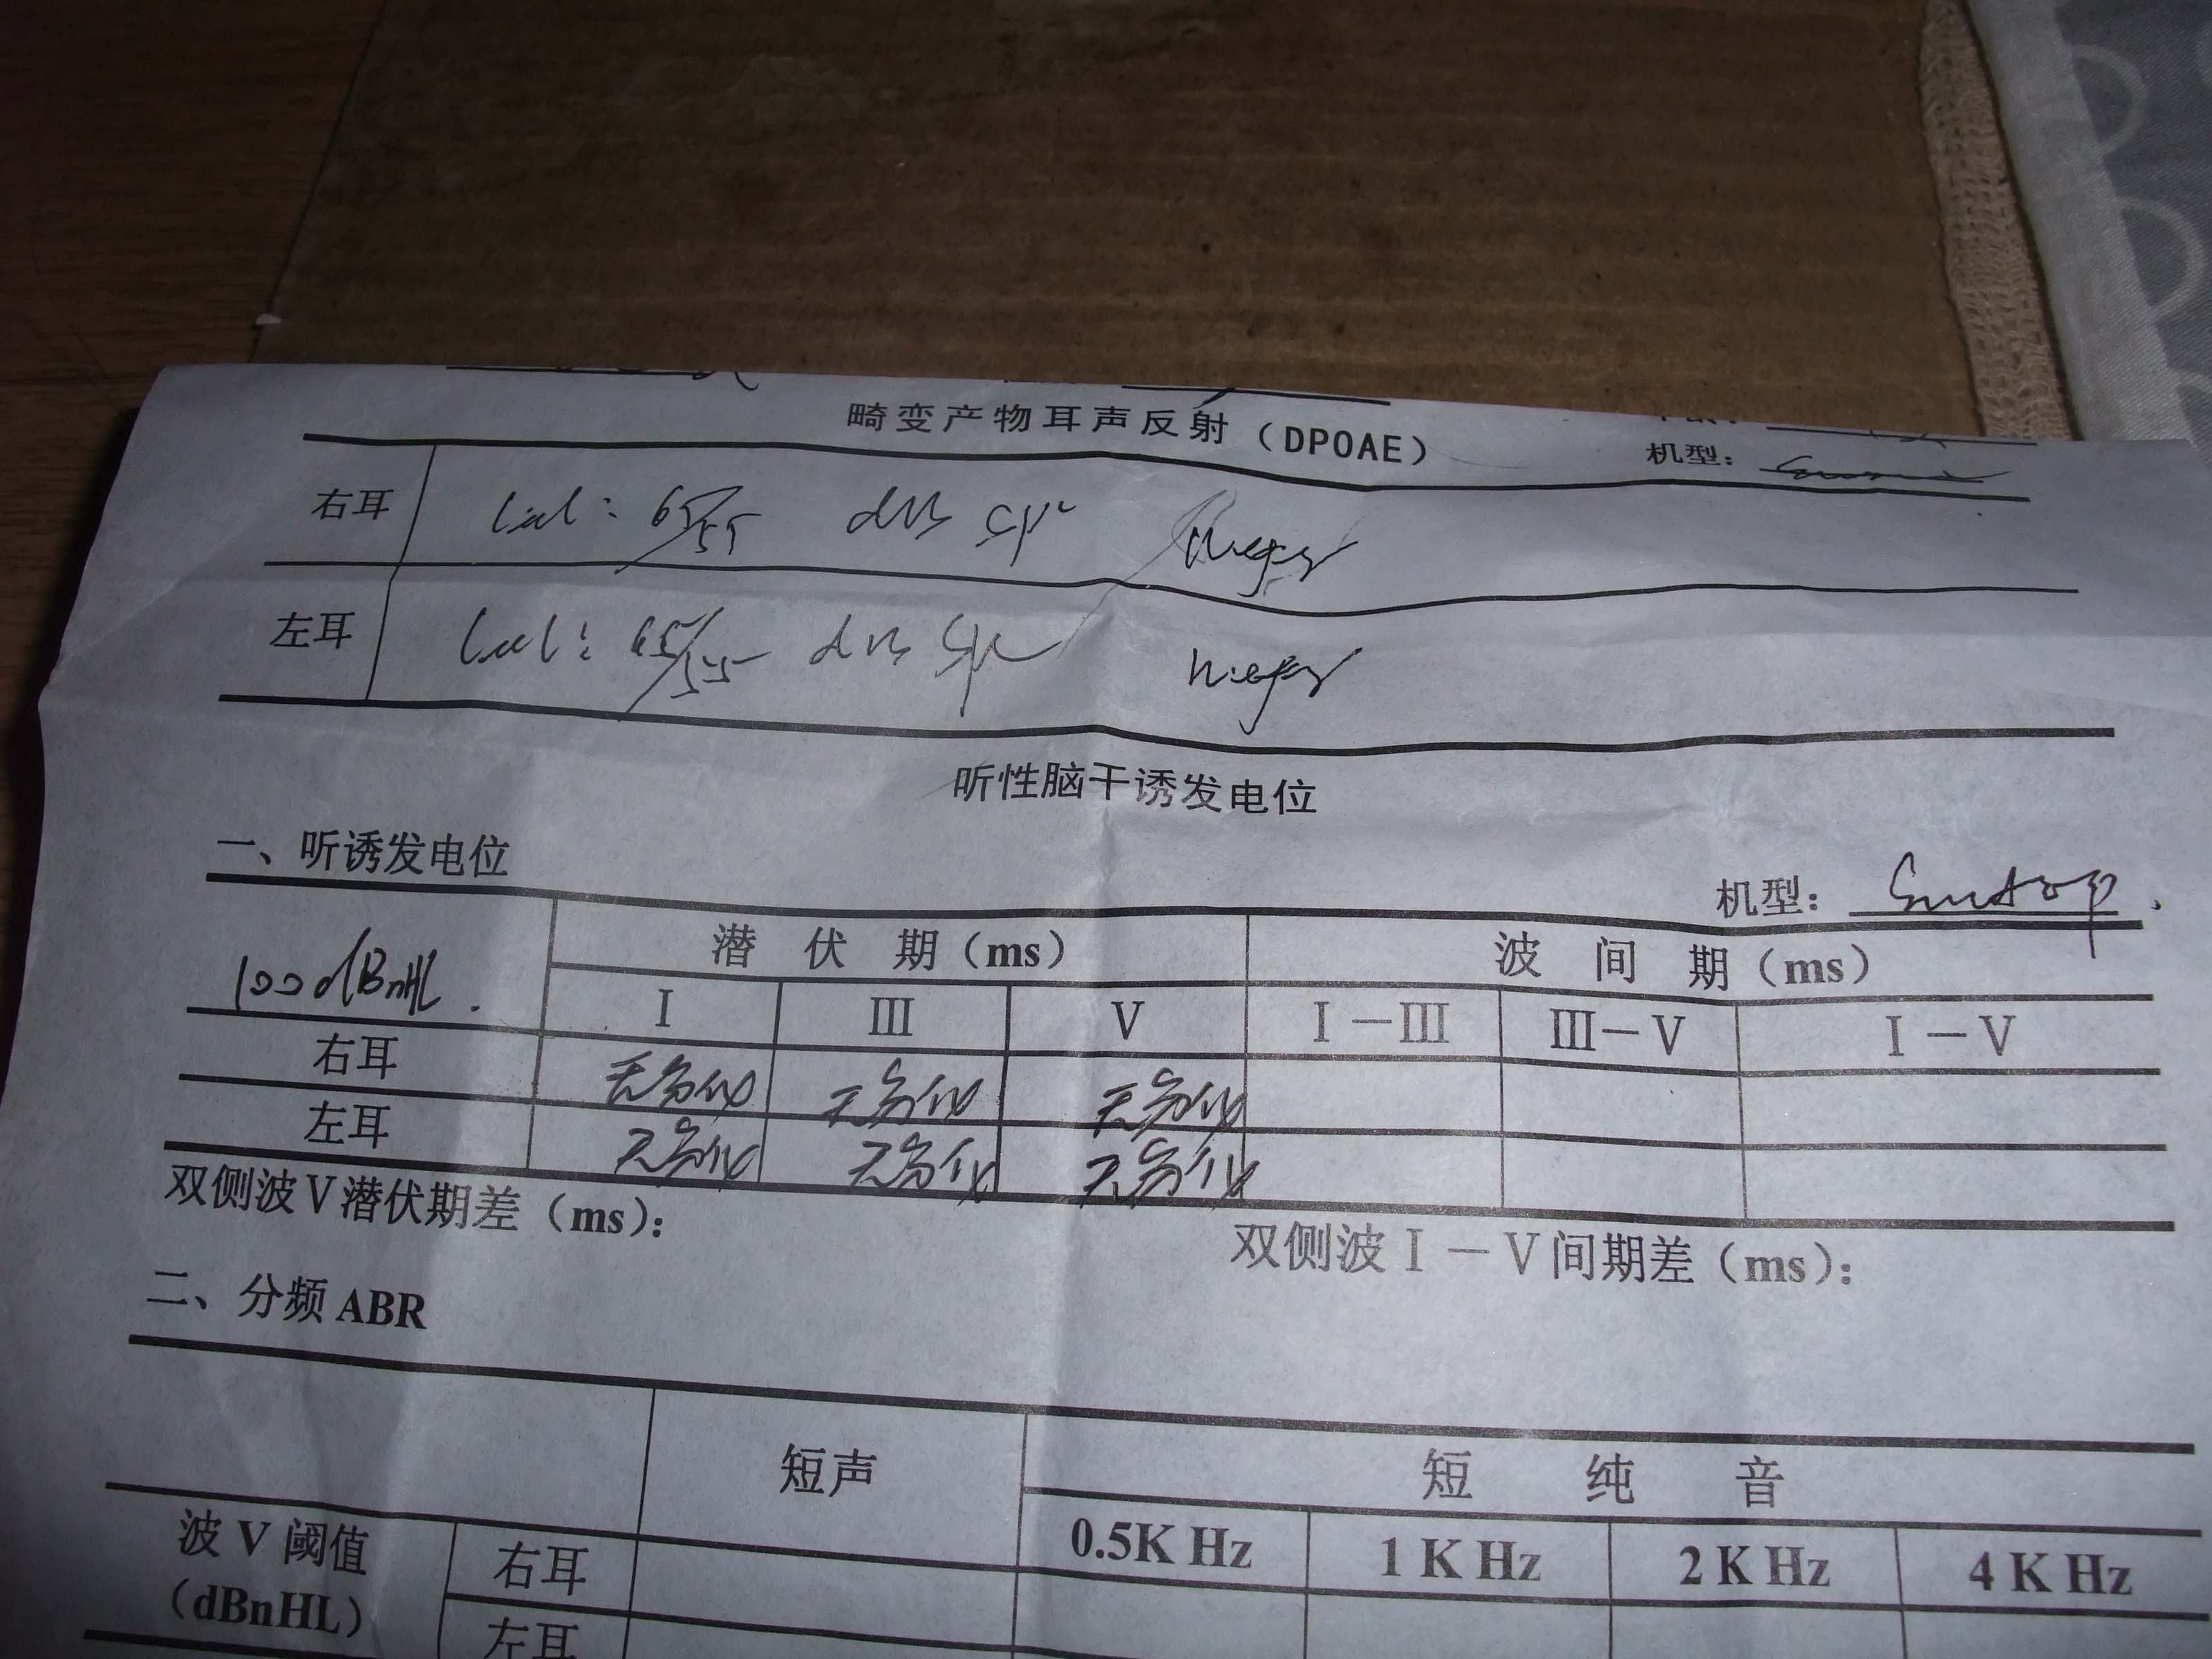 畸变产物耳声反射（DPOAE）
机型：
右耳 65/55
左耳 65/55
听性脑干诱发电位
一、听诱发电位
机型：
100dBnHL. 潜伏期（ms） 波间期（ms）
I III V I－III III－V I－V
右耳 无分化 无分化 无分化
左耳 无分化 无分化 无分化
双侧波V潜伏期差（ms）：
双侧波I－V间期差（ms）：
二、分频ABR
短声 短纯音
0.5K Hz 1K Hz 2K Hz 4K Hz
波V阈值（dBnHL） 右耳
左耳